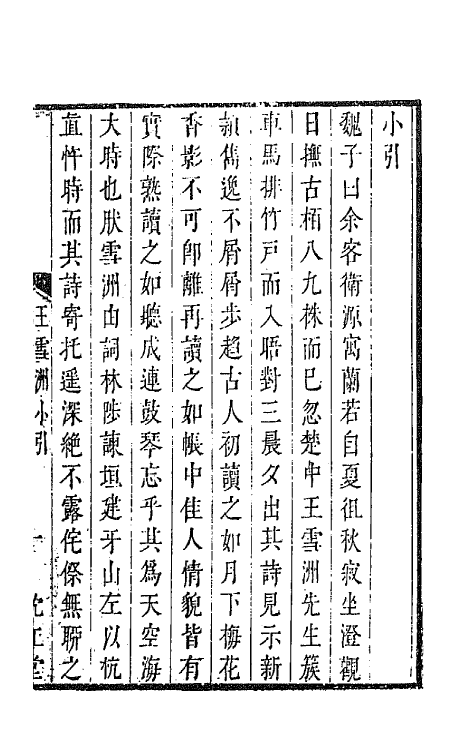 小引
魏子曰余客衛源寓蘭若自夏徂秋寂坐澄觀
日撫古栢八九株而已忽楚中王雪洲先生簇
車馬排竹戸而入晤對三晨夕出其詩見示新
穎雋逸不屑屑步趨古人初讀之如月下梅花
香影不可卽離再讀之如帳中佳人情貌皆有
實際熟讀之如聽成連鼓琴忘乎其爲天空海
大時也狀雪洲由詞林陟諫垣建牙山左以杭
直忤時而其詩寄托遥深絶不露侘傺無聊之
王雪洲小引